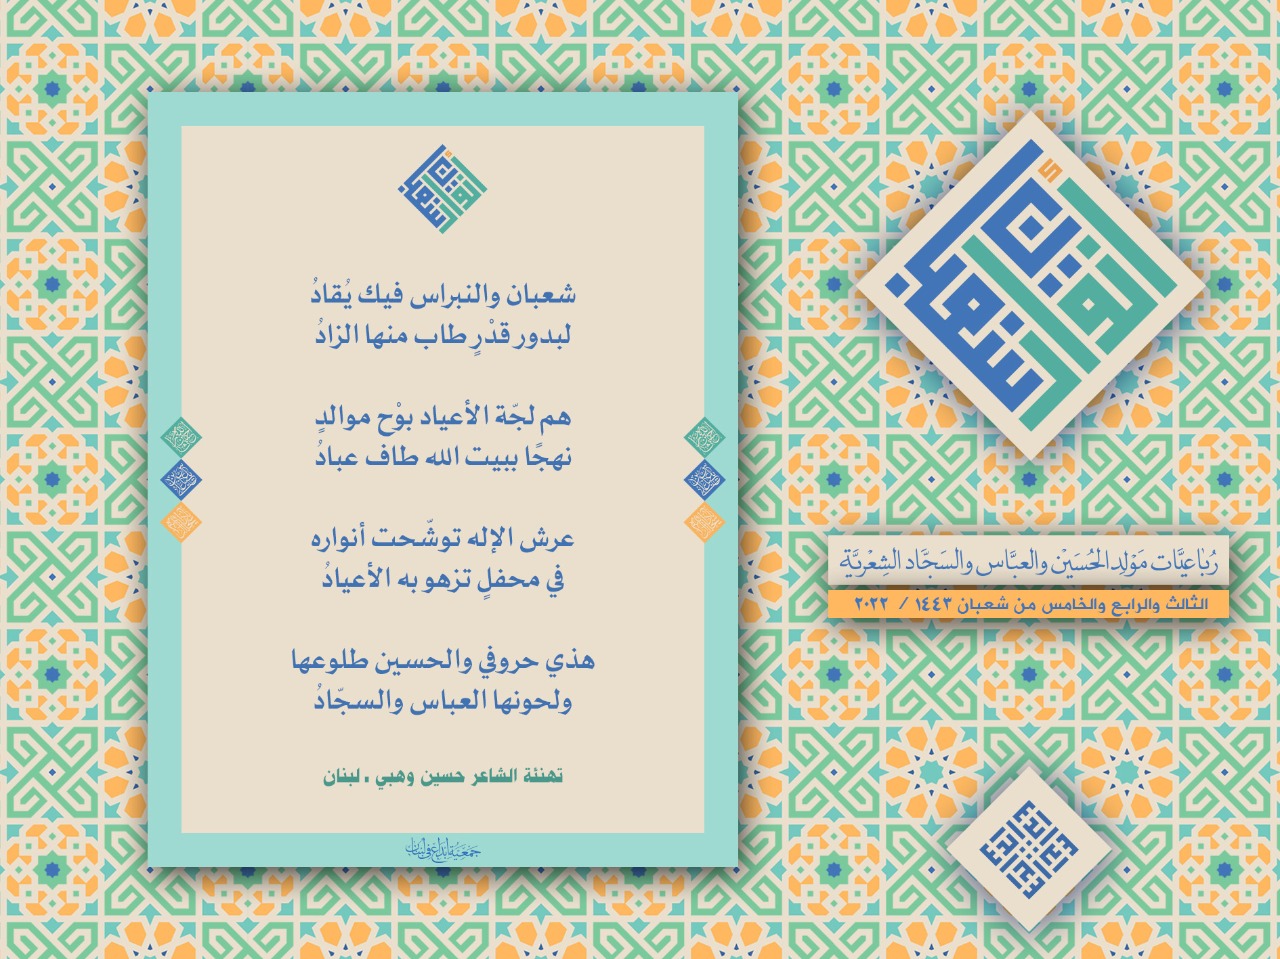 شعبان والنبراس فيك يُقادُ
لبدور قدْرٍ طاب منها الزادُ
هم لجّة الأعياد بوْح موالدٍ
نهجًا ببيت الله طاف عبادُ
عرش الإله توشّحت أنواره
في محفلٍ تزهو به الأعيادُ
هذي حروفي والحسين طلوعها
ولحونها العباس والسجّادُ
تهنئة الشاعر حسين وهبي . لبنان
جَمعيّة إبداع في لبنان
رُبَاعيَّات مَوْلِد الحُسَيْن والعبَّاس والسَجَّاد الشِعْريَّة
الثالث والرابع والخامس من شعبان ١٤٤٣ / ٢٠٢٢